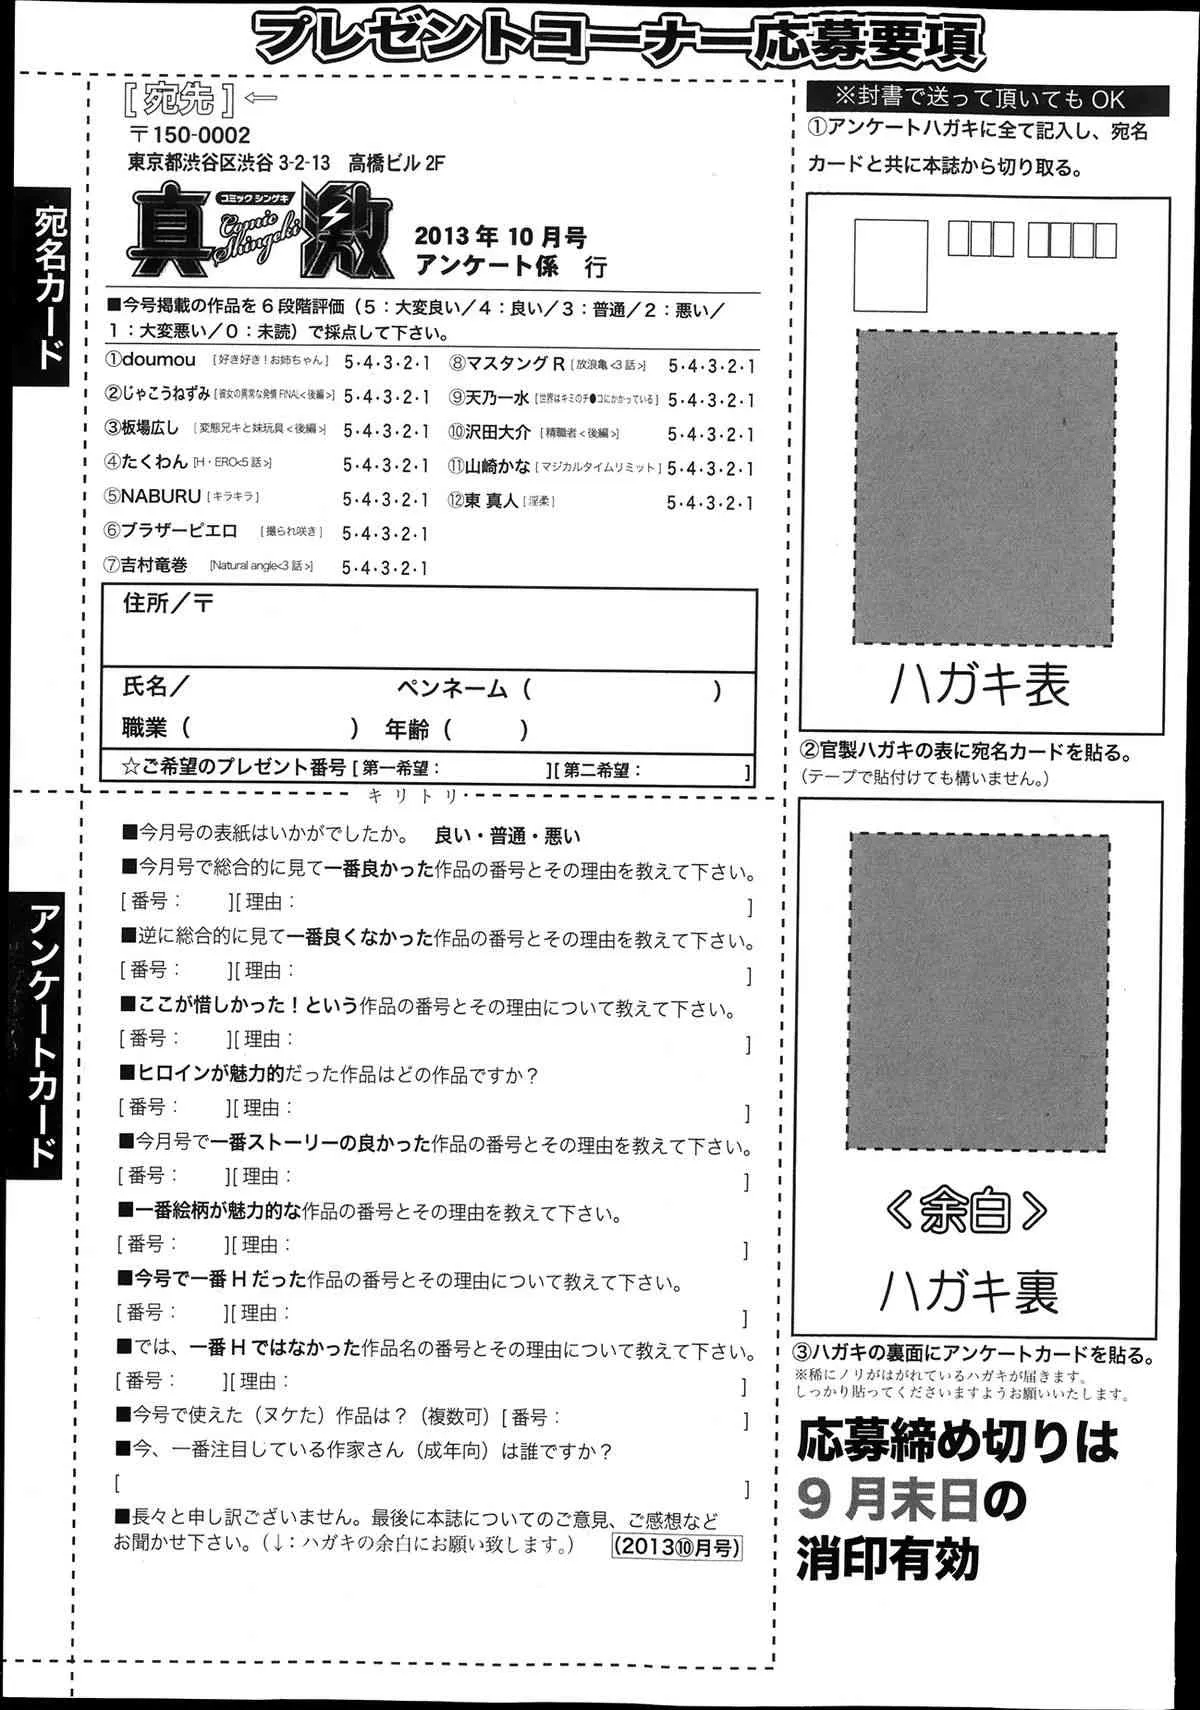 プレゼントコーナー応募要項
[宛先]⇦
〒150-0002
東京都渋谷区渋谷 3-2-13　高橋ビル 2F
真激
コミック シンゲキ
Comic Shingeki
2013 年 10 月号
アンケート係　行
■今号掲載の作品を 6 段階評価（5：大変良い／4：良い／3：普通／2：悪い／
1：大変悪い／0：未読）で採点して下さい。
①doumou [好き好き！お姉ちゃん] 5・4・3・2・1
②じゃこうねずみ [彼女の異常な発情 FINAL<後編>] 5・4・3・2・1
③板場広し [変態兄キと妹玩具<後編>] 5・4・3・2・1
④たくわん [H・ERO<5話>] 5・4・3・2・1
⑤NABURU [キラキラ] 5・4・3・2・1
⑥ブラザーピエロ [撮られ咲き] 5・4・3・2・1
⑦吉村竜巻 [Natural angle<3話>] 5・4・3・2・1
⑧マスタング R [放浪亀<3話>] 5・4・3・2・1
⑨天乃一水 [世界はキミのチ●コにかかっている] 5・4・3・2・1
⑩沢田大介 [精職者<後編>] 5・4・3・2・1
⑪山崎かな [マジカルタイムリミット] 5・4・3・2・1
⑫東 真人 [淫柔] 5・4・3・2・1
住所／〒
氏名／　ペンネーム（　）
職業（　）　年齢（　）
☆ご希望のプレゼント番号 [第一希望：　][第二希望：　]
キリトリ
宛名カード
■今月号の表紙はいかがでしたか。　良い・普通・悪い
■今月号で総合的に見て一番良かった作品の番号とその理由を教えて下さい。
[番号：　][理由：　]
■逆に総合的に見て一番良くなかった作品の番号とその理由を教えて下さい。
[番号：　][理由：　]
■ここが惜しかった！という作品の番号とその理由について教えて下さい。
[番号：　][理由：　]
■ヒロインが魅力的だった作品はどの作品ですか？
[番号：　][理由：　]
■今月号で一番ストーリーの良かった作品の番号とその理由を教えて下さい。
[番号：　][理由：　]
■一番絵柄が魅力的な作品の番号とその理由を教えて下さい。
[番号：　][理由：　]
■今号で一番 H だった作品の番号とその理由について教えて下さい。
[番号：　][理由：　]
■では、一番 H ではなかった作品名の番号とその理由について教えて下さい。
[番号：　][理由：　]
■今号で使えた（ヌケた）作品は？（複数可）[番号：　]
■今、一番注目している作家さん（成年向）は誰ですか？
[　]
■長々と申し訳ございません。最後に本誌についてのご意見、ご感想など
お聞かせ下さい。（↓：ハガキの余白にお願い致します。）　(2013⑩月号)
アンケートカード
※封書で送って頂いても OK
①アンケートハガキに全て記入し、宛名
カードと共に本誌から切り取る。
ハガキ表
②官製ハガキの表に宛名カードを貼る。
（テープで貼付けても構いません。）
＜余白＞
ハガキ裏
③ハガキの裏面にアンケートカードを貼る。
※稀にノリがはがれているハガキが届きます。
しっかり貼ってくださいますようお願いいたします。
応募締め切りは
9 月末日の
消印有効